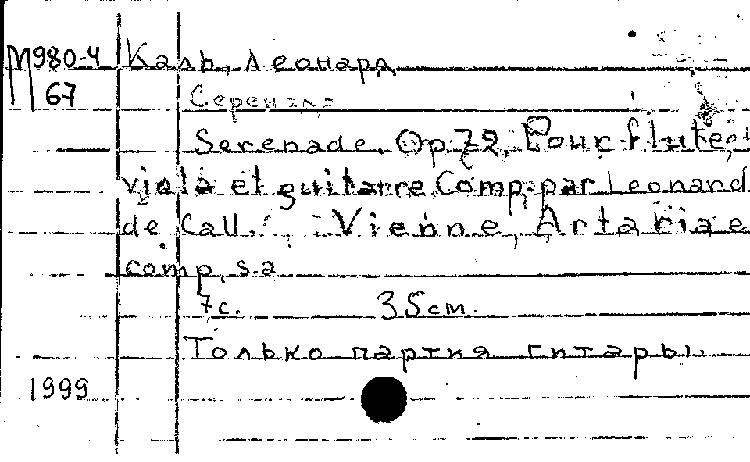 М980-4 Каль, Леонард
67 Серенада
Serenade. Op. 72. Pour flute,
viola et guitarre Comp. par Leonard
de Call. Vienne, Artaria e
comp, s.a
7с. 35см.
Только партия гитары.
1999